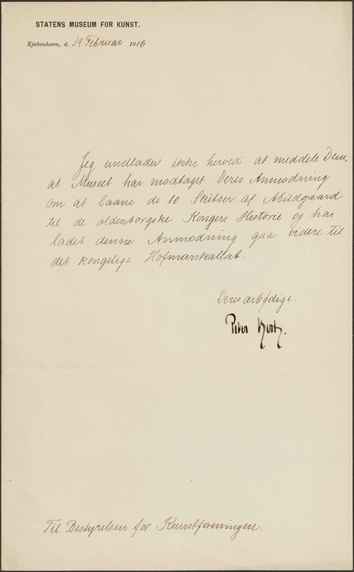 STATENS MUSEUM FOR KUNST.
Kjøbenhavn, d. 19 Februar 1916
Jeg undlader ikke herved at meddele Dem,
at Museet har modtaget Deres Anmodning
om at laane de to Skitser af Abildgaard
til de oldenborgske Kongers Historie og har
ladet denne Anmodning gaa videre til
det kongelige Hofmarskallat.
Deres ærbødige
Peter Hertz.
Til Bestyrelsen for Kunstforeningen.